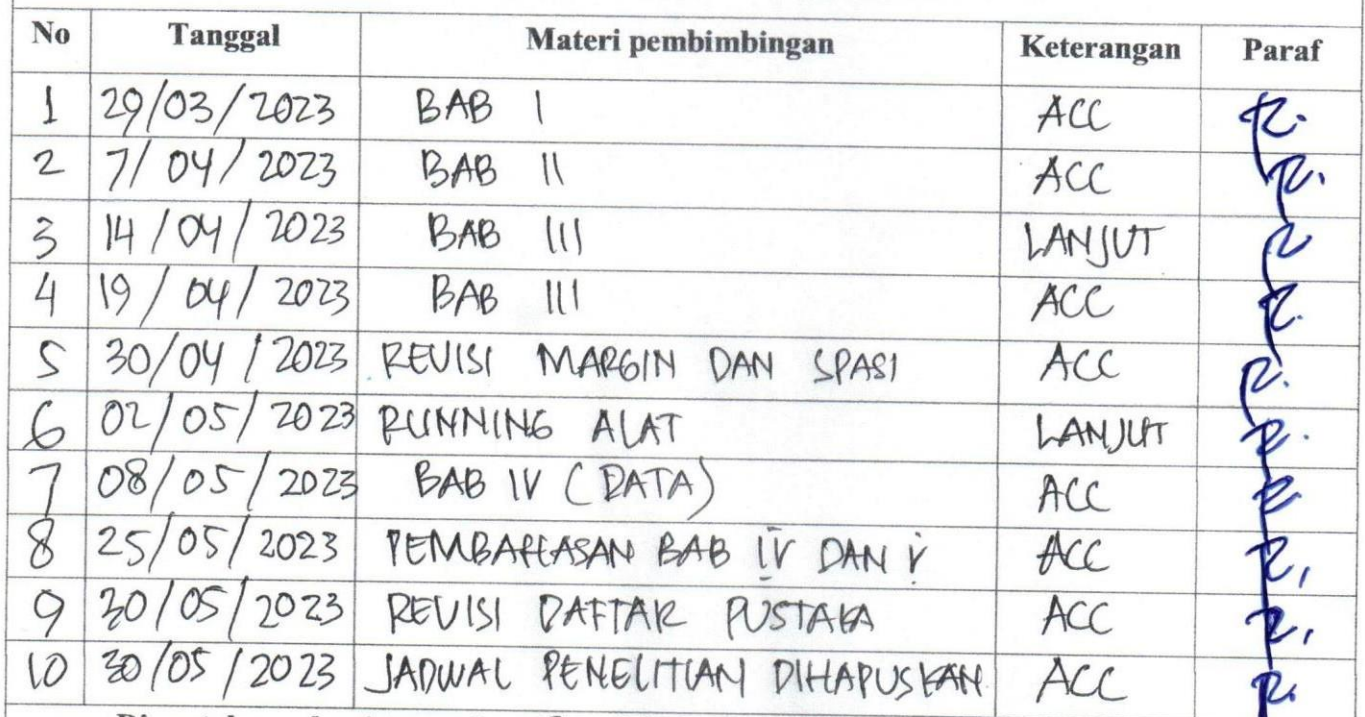 No Tanggal Materi pembimbingan Keterangan Paraf
1 29/03/2023 BAB I ACC
2 7/04/2023 BAB II ACC
3 14/04/2023 BAB III LANJUT
4 19/04/2023 BAB III ACC
5 30/04/2023 REVISI MARGIN DAN SPASI ACC
6 02/05/2023 RUNNING ALAT LANJUT
7 08/05/2023 BAB IV (DATA) ACC
8 25/05/2023 PEMBAHASAN BAB IV DAN V ACC
9 30/05/2023 REVISI DAFTAR PUSTAKA ACC
10 30/05/2023 JADWAL PENELITIAN DIHAPUSKAN ACC